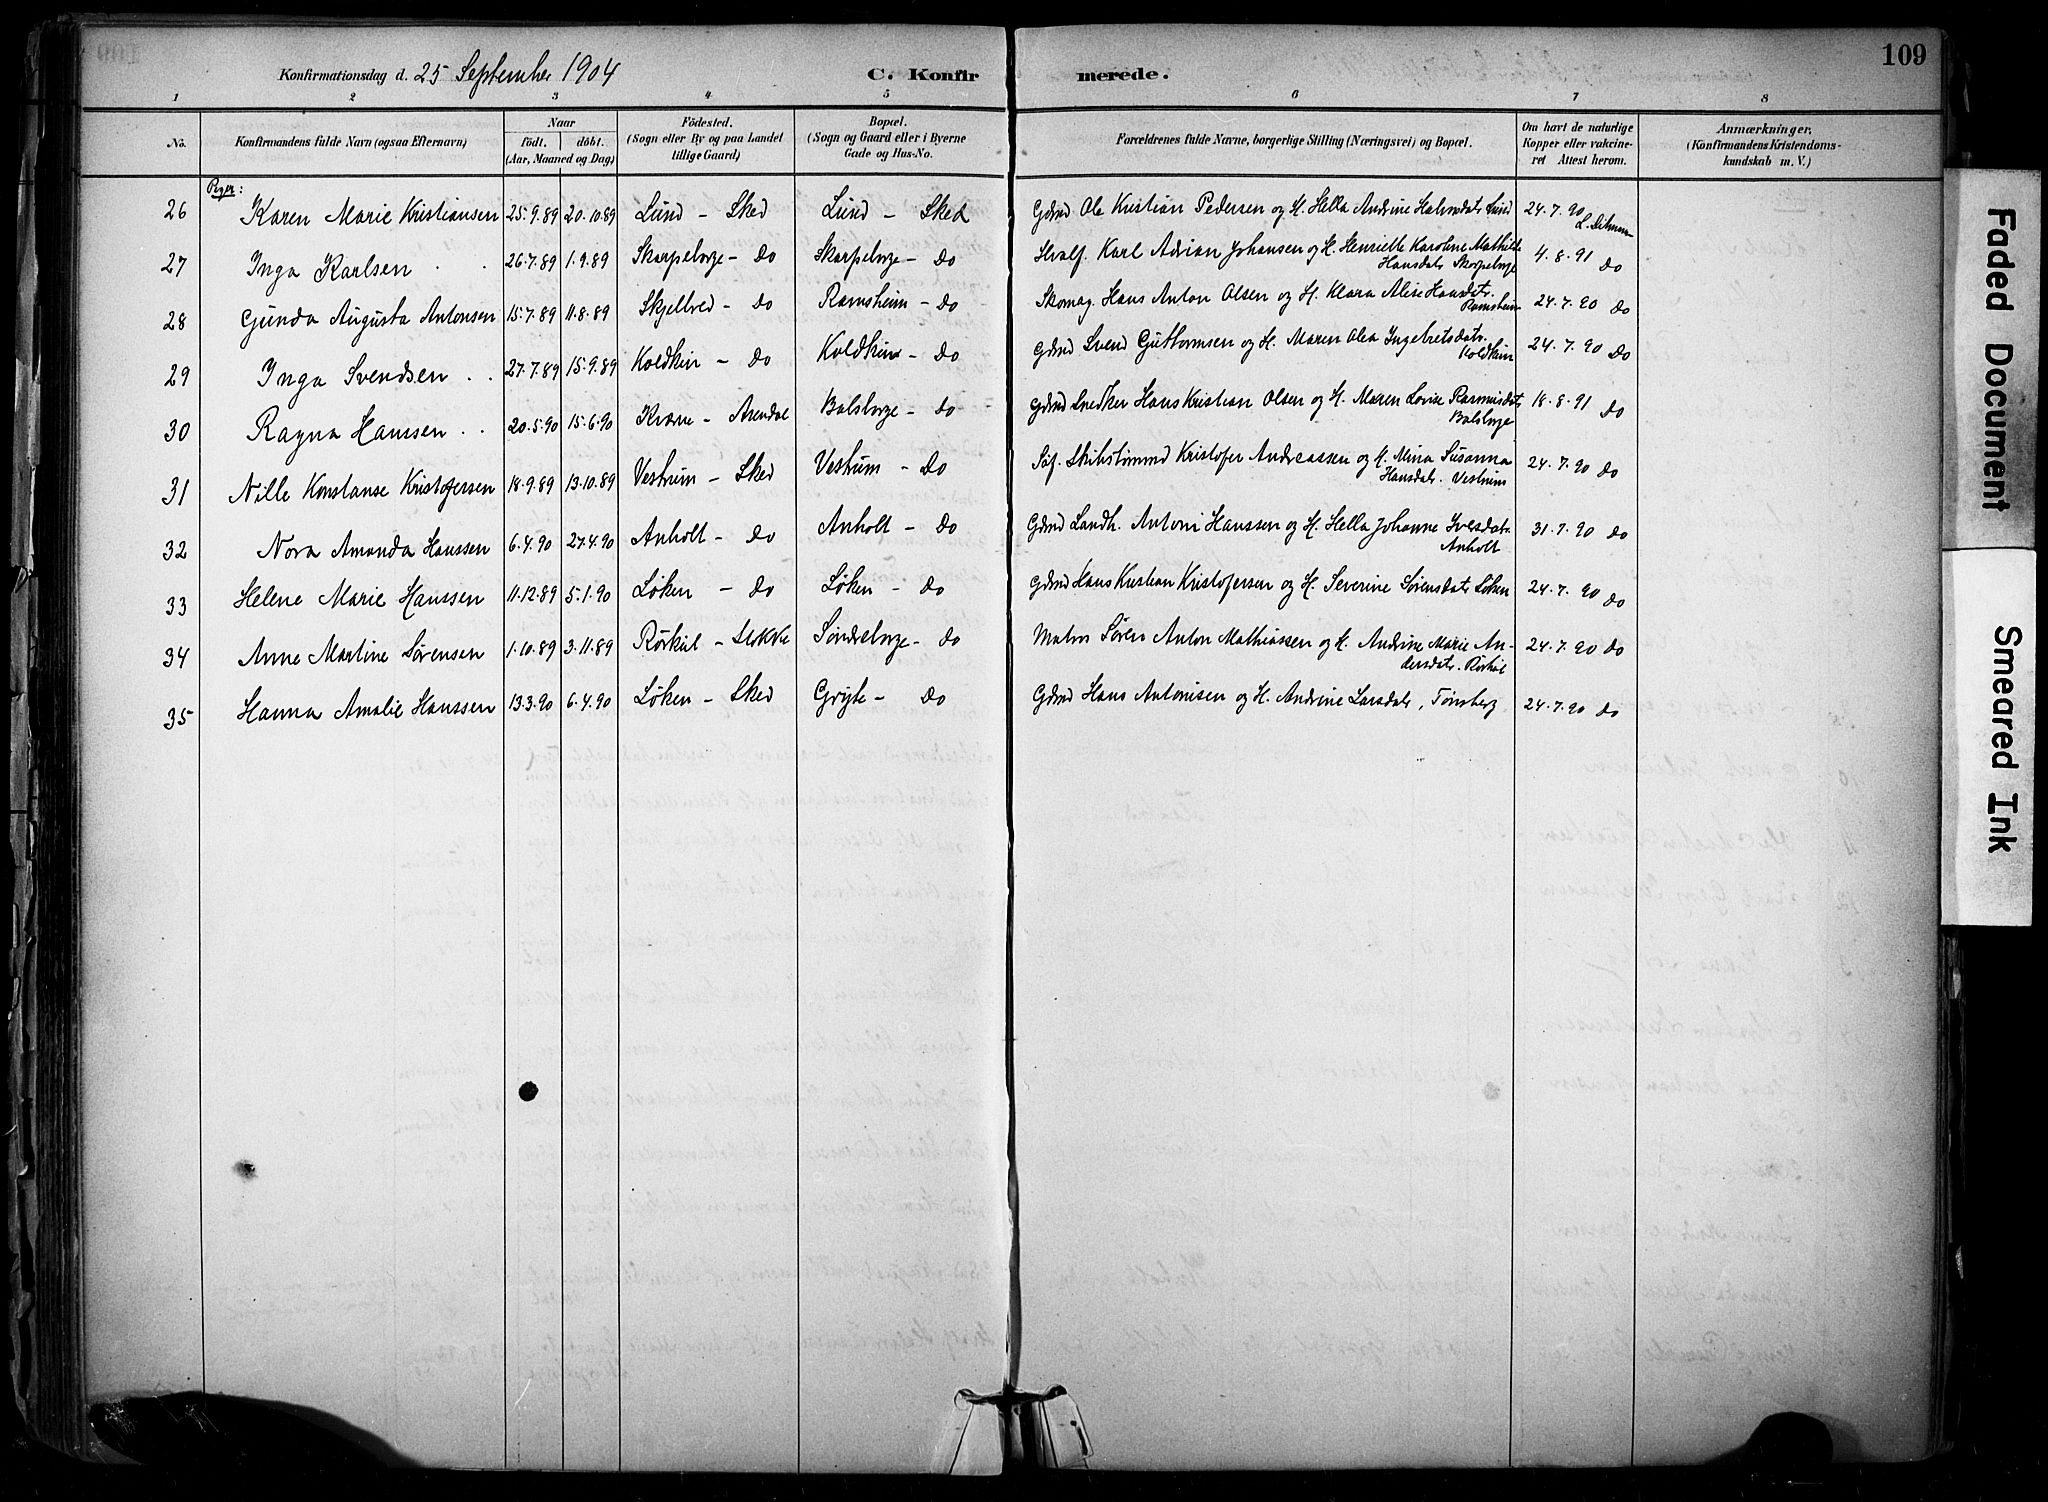 109
Konfirmationsdag d. 25 September 1904 C. Konfir merede.
1 2 3 4 5 6 7 8
No. Konfirmandens fulde Navn (ogsaa Efternavn) Naar födt. döbt. (Aar, Maaned og Dag) Födested. (Sogn eller By og paa Landet tillige Gaard) Bopæl. (Sogn og Gaard eller i Byerne Gade og Hus-No. Forældrenes fulde Navne, borgerlige Stilling (Næringsvei) og Bopæl. Om havt de naturlige Kopper eller vakcineret Attest herom. Anmærkninger, (Konfirmandens Kristendomskundskab m. V.)
Piger:
26 Karen Marie Kristiansen 25.9.89 20.10.89 Lund – Sked Lund – Sked Gdmd Ole Kristian Pedersen og H. Hella Andrine Halvorsdatr Lund 24.7.90
27 Inga Karlsen 26.7.89 1.9.89 Skarpeborge – do Skarpeborge – do Hvalf. Karl Adrian Johansen og H. Henriette Karoline Mathilde Hansdatr Skarpeborge 4.8.91 do
28 Gunda Augusta Antonsen 15.7.89 11.8.89 Skjellved – do Ramsheim – do Skomag. Hans Anton Olsen og H. Klara Alise Hansdatr. Ramsheim 24.7.90 do
29 Inga Svendsen 27.7.89 15.9.89 Koldkin – do Koldkin – do Gdmd Svend Guttormsen og H. Maren Olea Ingebretsdatr. Koldkin 24.7.90 do
30 Ragna Hanssen 20.5.90 15.6.90 Kværne – Arendal Bolsborge – do Gdmd Snedker Hans Kristian Olsen og H. Maren Lovise Rasmusdatr Bolsborge 18.8.91 do
31 Nille Konstanse Kristofersen 18.9.89 13.10.89 Vestrum – Sked Vestrum – do Søf. Skibstømmd Kristofer Andreassen og H. Mina Susanna Hansdatr. Vestrum 24.7.90 do
32 Nora Amanda Hanssen 6.4.90 27.4.90 Anholt – do Anholt – do Gdmd Landh. Antoni Hanssen og H. Hella Johanne Iversdatr Anholt 31.7.90 do
33 Helene Marie Hanssen 11.12.89 5.1.90 Løken – do Løken – do Gdmd Hans Kristian Kristofersen og H. Severine Sørensdatr Løken 24.7.90 do
34 Anne Martine Sørensen 1.10.89 3.11.89 Rørkol – Stokke Søndreborge – do Matros Søren Anton Mathiassen og H. Andrine Marie Andersdatr. Rørkol 24.7.90 do
35 Hanna Amalie Hanssen 13.3.90 6.4.90 Løken – Sked Gryte – do Gdmd Hans Antonisen og H. Andrine Larsdatr, Tønsberg 24.7.90 do
Faded Document
Smeared Ink